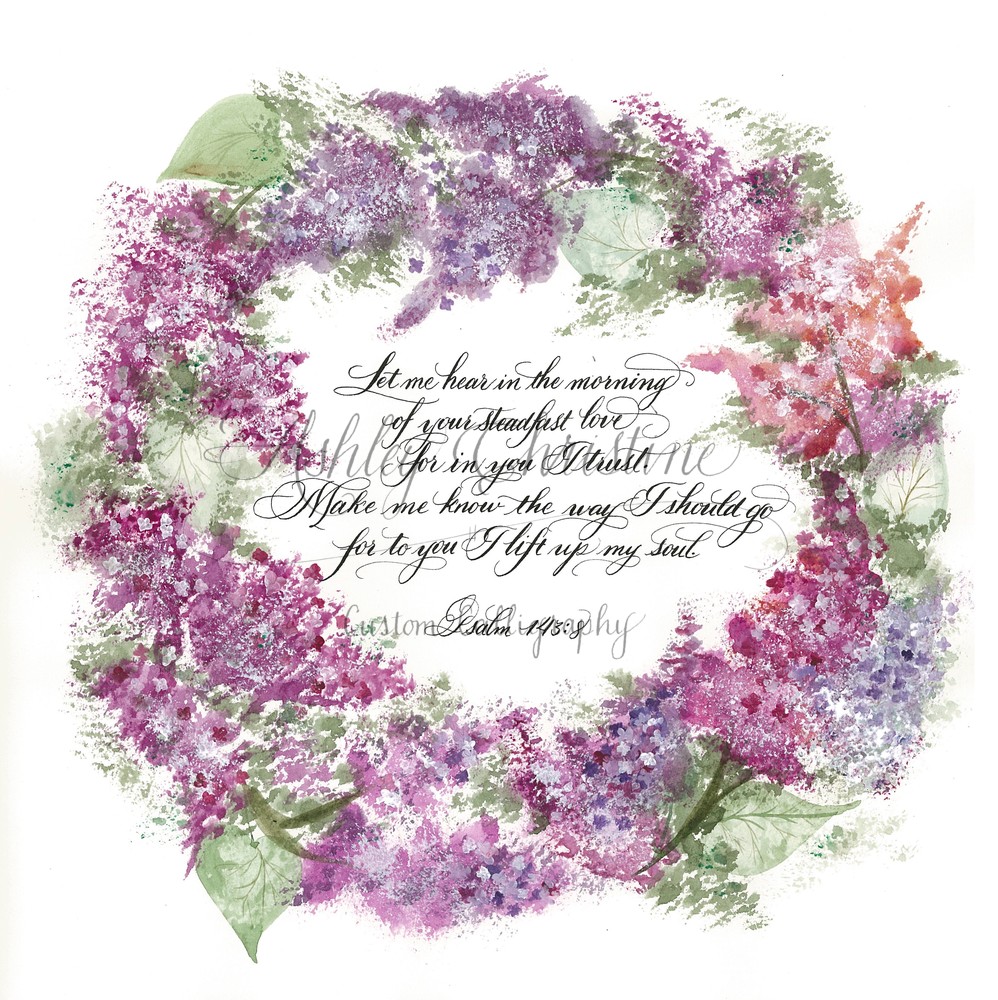 Let me hear in the morning
of your steadfast love
for in you I trust.
Make me know the way I should go
for to you I lift up my soul
Psalm 143:8
Ashley Christine
Custom Calligraphy